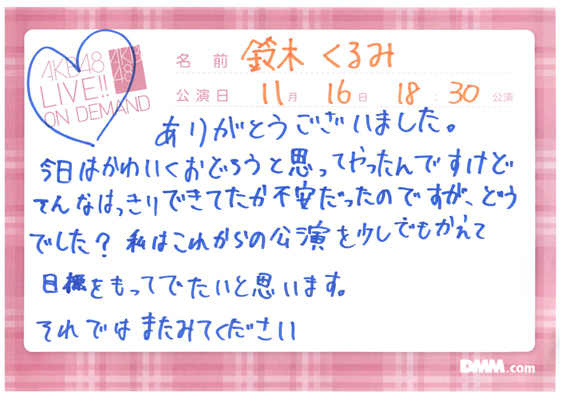 AKB48
LIVE!!
ON DEMAND
AKB
48
名前 鈴木くるみ
公演日 11月 16日 18:30 公演
ありがとうございました。
今日はかわいくおどろうと思ってやったんですけど
そんなはっきりできてたか不安だったのですが、どう
でした？私はこれからの公演を少しでもかえて
目標をもってでたいと思います。
それではまたみてください
DMM.com